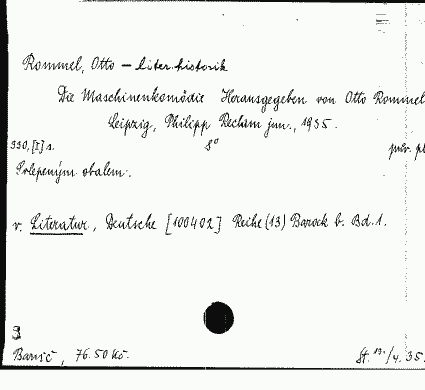 Rommel, Otto – liter. historik
Die Maschinenkomödie Herausgegeben von Otto Rommel
Leipzig, Philipp Reclam jun., 1935.
330, [I] s. 8° pův. pl
S vlepeným obalem.
v. Literatur, Deutsche [100402] Reihe (13) Barock b. Bd. 1.
Barvič, 76.50 Kč. St. 13./4. 35.